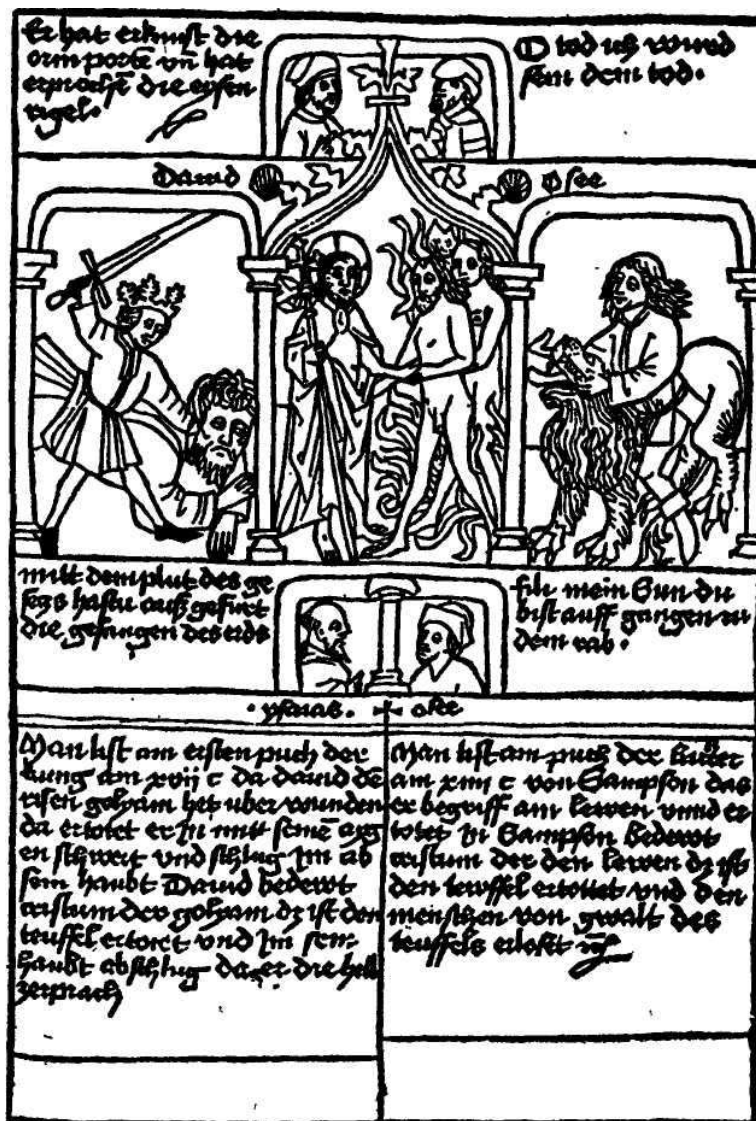 Er hat erknist die
orin porten vn̄ hat
erprochē die eysen
rigel.
O tod ich wird
sein dem tod.
Dauid
Osee
mitt dem plut des ge
setzs hastu auß gefirt
die gefangen des erds
fili mein Sun du
bist auff gangen zu
dem rab.
ysaias.
osee
Man list am ersten puch der
kung am xvij c da dauid dē
risen golyam het uber wunden
da ertotet er in mitt seinē ayg
en schwert vnd schlug im ab
sein haubt Dauid bedewt
cristum der golyam dz ist den
teuffel ertotet vnd im sein
haubt abschlug da er die hell
zerprach
Man list am puch der richter
am xiiij c von Sampson das
er begriff am lewen vnnd er
totet in Sampson bedewt
cristum der den lewen dz ist
den tewffel ertottet vnd den
menschen von gwalt des
teuffels erlost